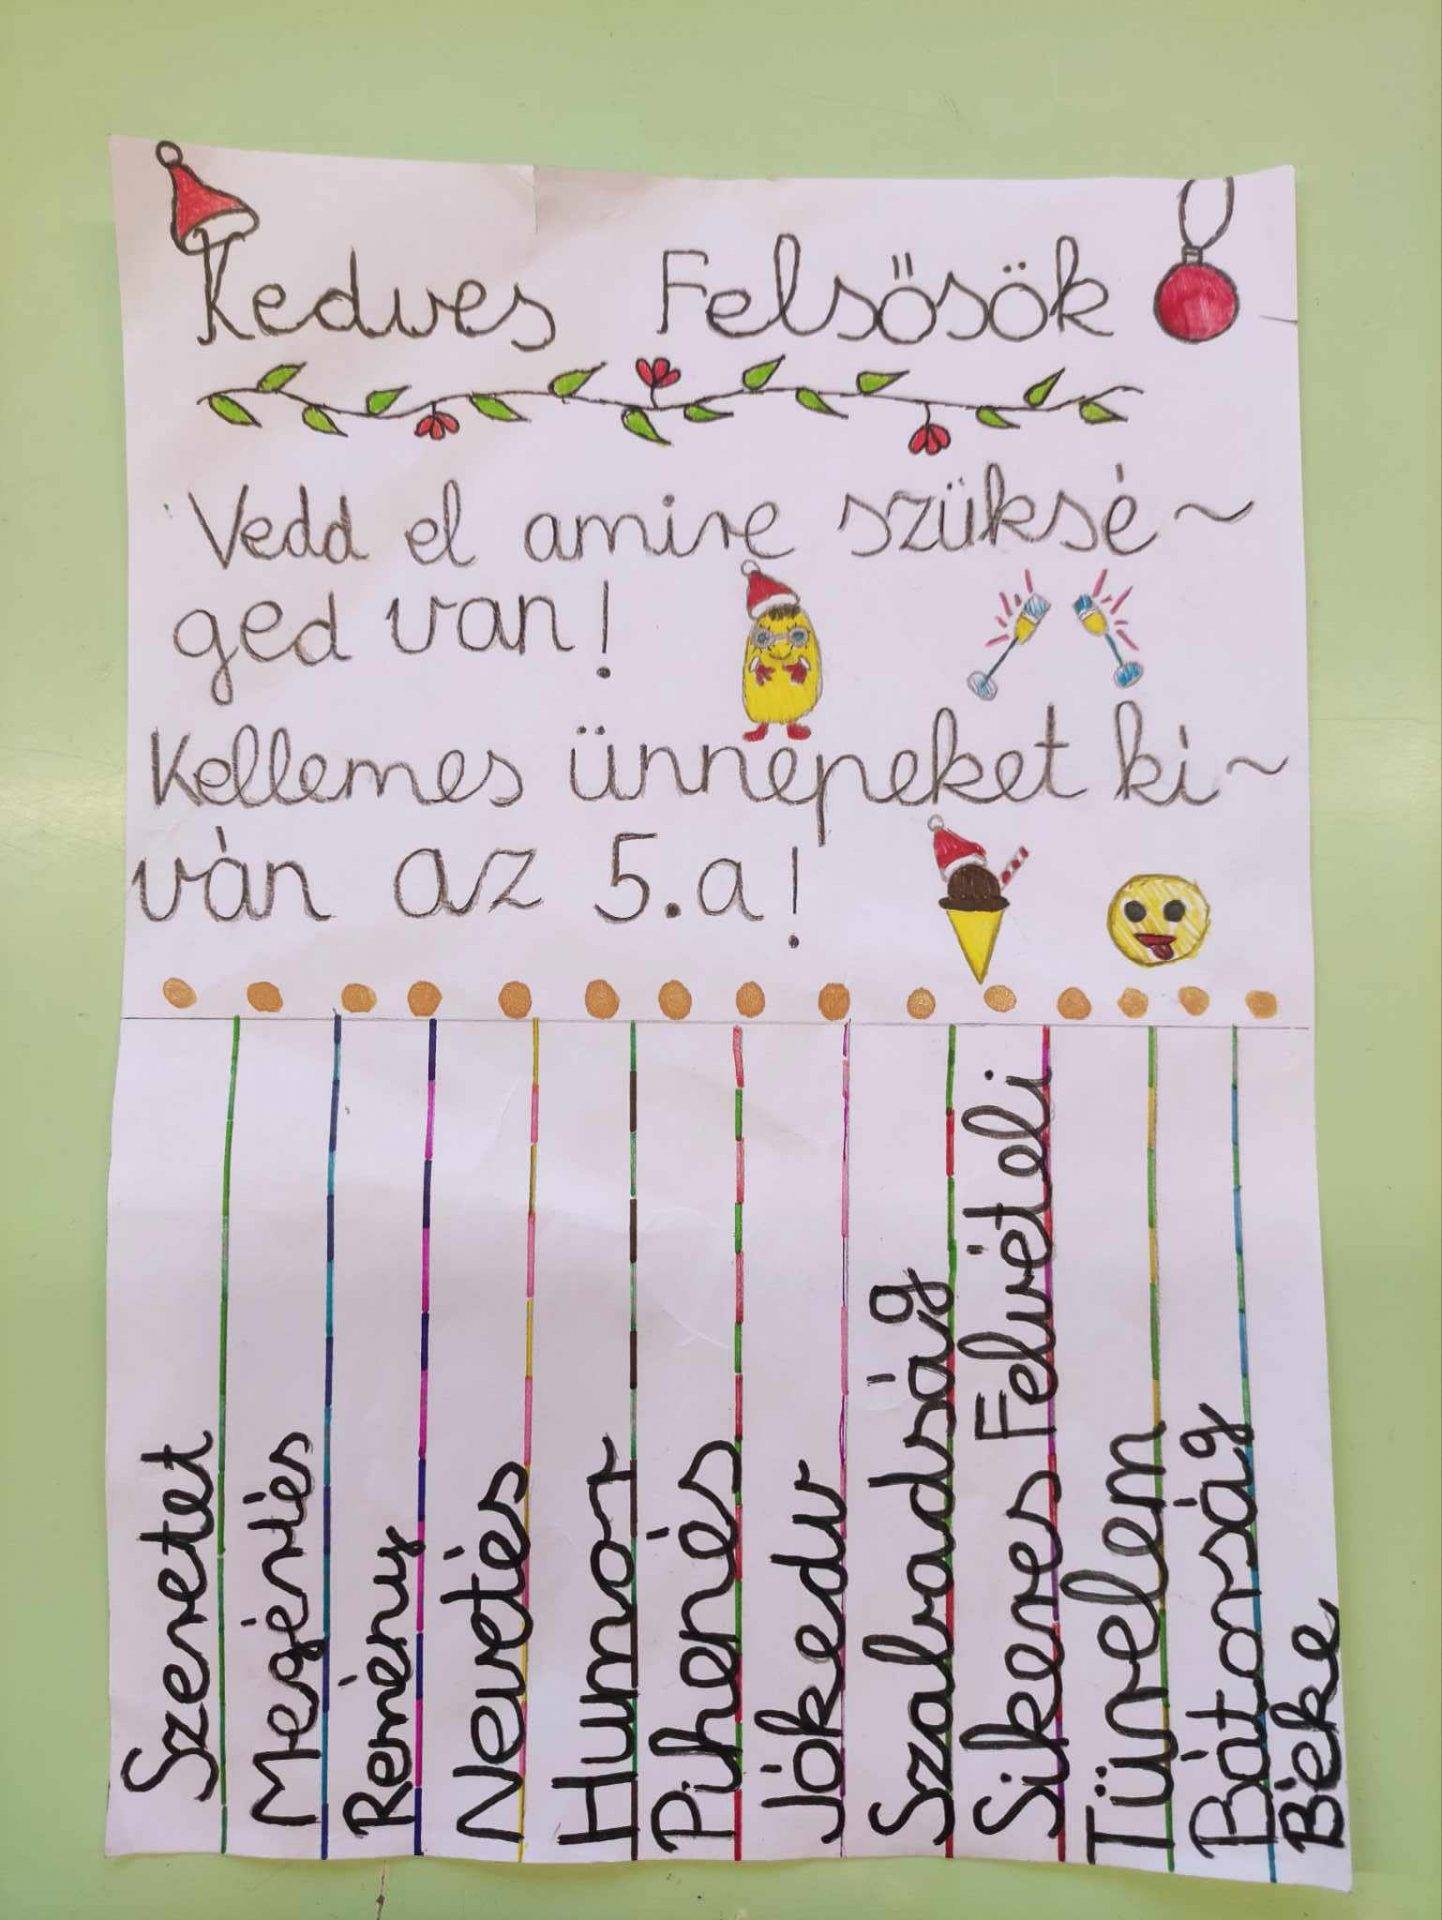 Kedves Felsősök
Vedd el amire szüksé~
ged van!
Kellemes ünnepeket kí~
ván az 5.a!
Szeretet
Megértés
Remény
Nevetés
Humor
Pihenés
Jókedv
Szabadság
Sikeres Felvételi
Türelem
Bátorság
Béke